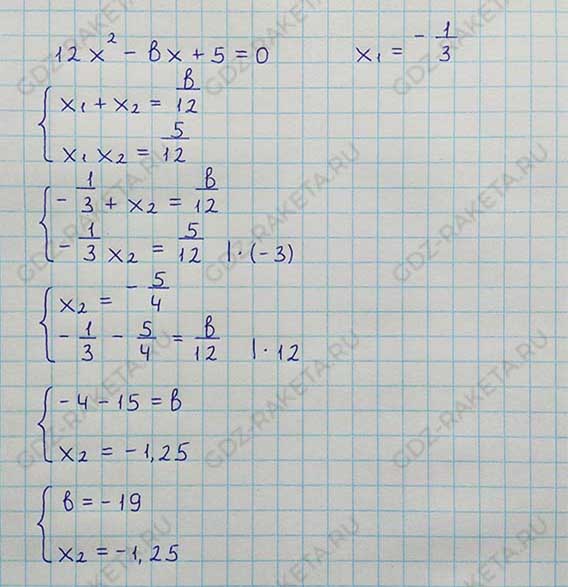 12x² - вx + 5 = 0    x₁ = -1/3
{ x₁ + x₂ = в/12
x₁ x₂ = 5/12
{ -1/3 + x₂ = в/12
-1/3 x₂ = 5/12  |·(-3)
{ x₂ = -5/4
-1/3 - 5/4 = в/12  |·12
{ -4 - 15 = в
x₂ = -1,25
{ в = -19
x₂ = -1,25
GDZ-RAKETA.RU